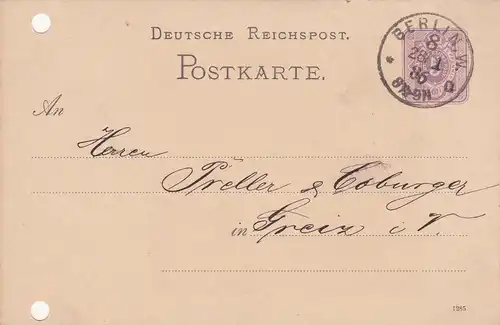 DEUTSCHE REICHSPOST.
POSTKARTE.
BERLIN, W.
8
28
1
86
An
Herren
Preller & Coburger
in Greiz i. V.
1285